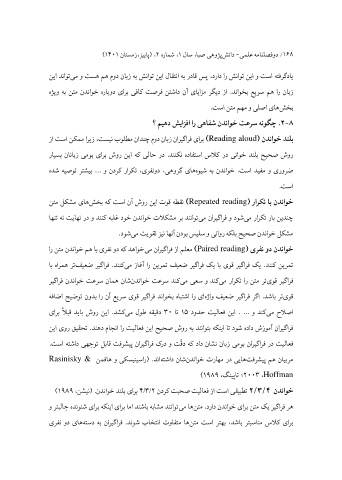 ۱۶۸/ دوفصلنامه علمی- دانش‌پژوهی صبا، سال ۱، شماره ۲، (پاییز،زمستان ۱۴۰۱)
یادگرفته است و این توانش را دارد، پس قادر به انتقال این توانش به زبان دوم هم هست و می‌تواند این
زبان را هم سریع بخواند. از دیگر مزایای آن داشتن فرصت کافی برای دوباره خواندن متن به ویژه
بخش‌های اصلی و مهم متن است.
۲-۸. چگونه سرعت خواندن شفاهی را افزایش دهیم ؟
بلند خواندن (Reading aloud) برای فراگیران زبان دوم چندان مطلوب نیست، زیرا ممکن است از
روش صحیح بلند خوانی در کلاس استفاده نکنند. در حالی که این روش برای بومی زبانان بسیار
ضروری و مفید است. خواندن به شیوه‌های گروهی، دونفری، تکرار کردن و ... بیشتر توصیه شده
است.
خواندن با تکرار (Repeated reading) نقطه قوت این روش آن است که بخش‌های مشکل متن
چندین بار تکرار می‌شود و فراگیران می‌توانند بر مشکلات خواندن خود غلبه کنند و در نهایت نه تنها
مشکل خواندن صحیح بلکه روانی و سلیس بودن آنها نیز تقویت می‌شود.
خواندن دو نفری (Paired reading) معلم از فراگیران می‌خواهد که دو نفری با هم خواندن متن را
تمرین کنند. یک فراگیر قوی با یک فراگیر ضعیف تمرین را آغاز می‌کنند. فراگیر ضعیف‌تر همراه با
فراگیر قوی‌تر متن را تکرار می‌کند و سعی می‌کند سرعت خواندن‌شان همان سرعت خواندن فراگیر
قوی‌تر باشد. اگر فراگیر ضعیف واژه‌ای را اشتباه بخواند فراگیر قوی سریع آن را بدون توضیح اضافه
اصلاح می‌کند و ... . این فعالیت حدود ۱۵ تا ۳۰ دقیقه طول می‌کشد. این روش باید قبلاً برای
فراگیران آموزش داده شود تا اینکه بتوانند به روش صحیح این فعالیت را انجام دهند. تحقیق روی این
فعالیت در فراگیران بومی زبان نشان داد که دقّت و درک فراگیران پیشرفت قابل توجهی داشته است.
مربیان هم پیشرفت‌هایی در مهارت خواندن‌شان داشته‌اند. (راسینیسکی و هافمن Rasinisky &
Hoffman، ۲۰۰۳؛ تاپینگ، ۱۹۸۹)
خواندن ۲/۳/۴ تطبیقی است از فعالیت صحبت کردن ۴/۳/۲ برای بلند خواندن. (نیشن، ۱۹۸۹)
هر فراگیر یک متن برای خواندن دارد. متن‌ها می‌توانند مشابه باشند اما برای اینکه برای شنونده جالبتر و
برای کلاس مناسبتر باشد، بهتر است متن‌ها متفاوت انتخاب شوند. فراگیران به دسته‌های دو نفری